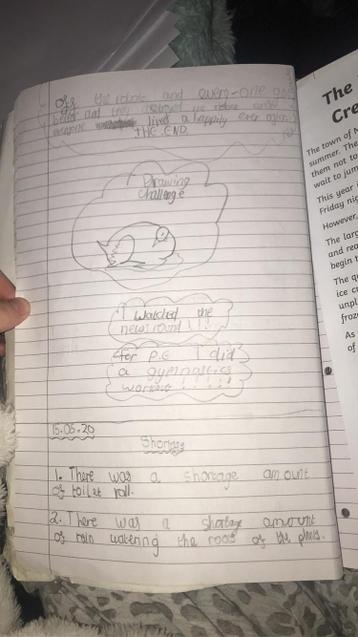 off the robot and every-one got
better and they
everyone lived a happily ever again
THE END
Drawing
Challenge
I watched the
newsround!!!
for P.E I did
a gymnastics
workout!!!!!!
15.05.20
Shortage
1. There was a shortage amount
of toilet roll.
2. There was a shortage amount
of rain watering the roots of the plants.
The
Cre
The town of
summer. The
them not to
wait to jum
This year
Friday nig
However,
The larg
and rea
begin t
The qu
ice c
unpl
froz
As
of